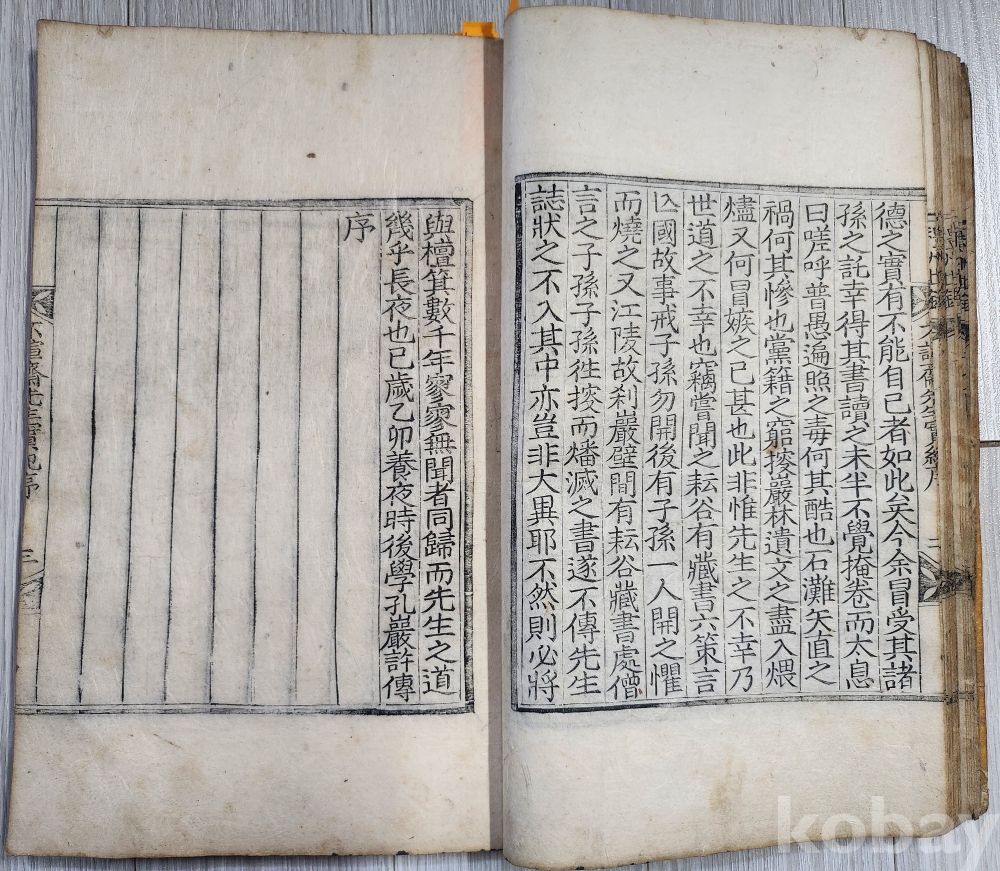 德之實有不能自已者如此矣今余冒受其諸
孫之託幸得其書讀之未半不覺掩卷而太息
曰嗟呼普愚遍照之毒何其酷也石灘矢直之
禍何其慘也黨籍之窮搜嚴林遺文之盡入煨
燼又何冒嫉之已甚也此非惟先生之不幸乃
世道之不幸也竊嘗聞之耘谷有藏書六策言
以國故事戒子孫勿開後有子孫一人開之懼
而燒之又江陵故刹巖壁間有耘谷藏書處僧
言之子孫子孫徃搜而燔滅之書遂不傳先生
誌狀之不入其中亦豈非大異耶不然則必將
與檀箕數千年寥寥無聞者同歸而先生之道
幾乎長夜也已歲乙卯養夜時後學孔巖許傳
序
齋先生實紀序
三
kobay